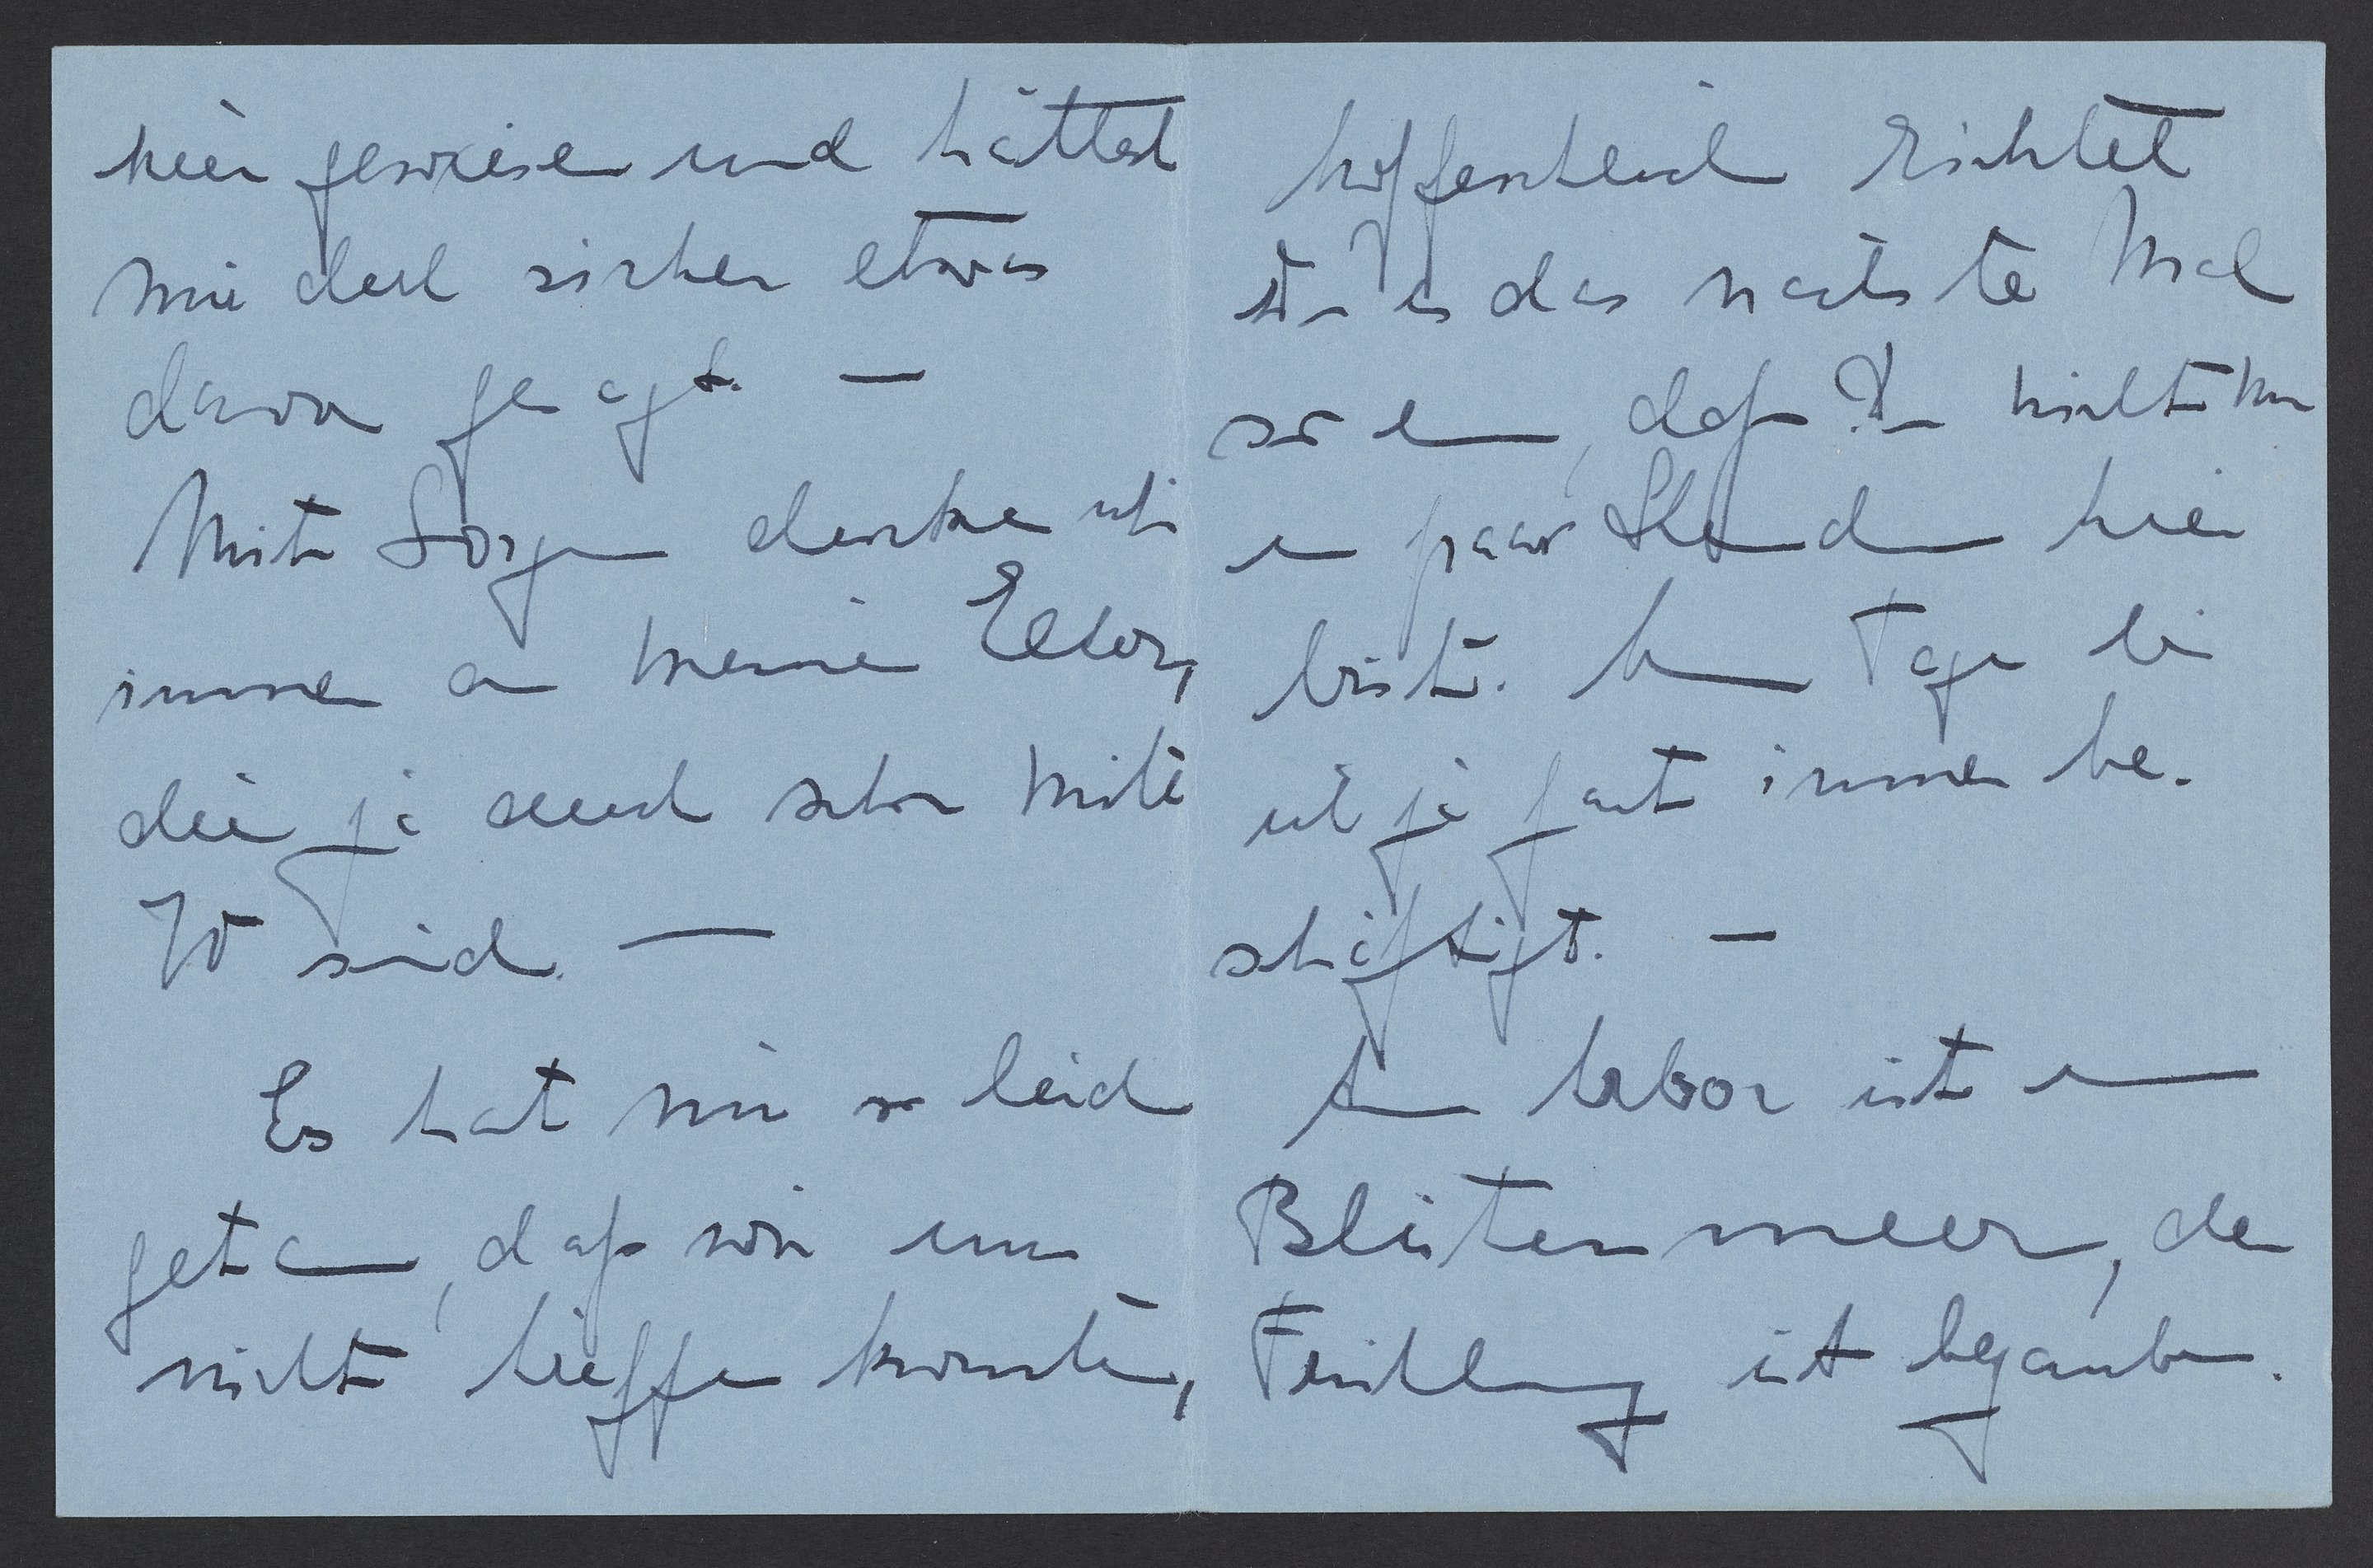 hier gewesen und hättest
mir doch sicher etwas
davon gesagt. —
Mit Sorgen denke ich
immer an meine Eltern,
die ja auch schon Mitte
70 sind. —
Es hat mir so leid
getan, daß wir uns
nicht treffen konnten,
hoffentlich richtet
Du es das nächste Mal
so ein, daß Du nicht nur
ein paar Stunden hier
bist. Am Tage bin
ich ja fast immer be-
schäftigt. —
Am Labor ist ein
Blütenmeer, der
Frühling ist bezaubernd.